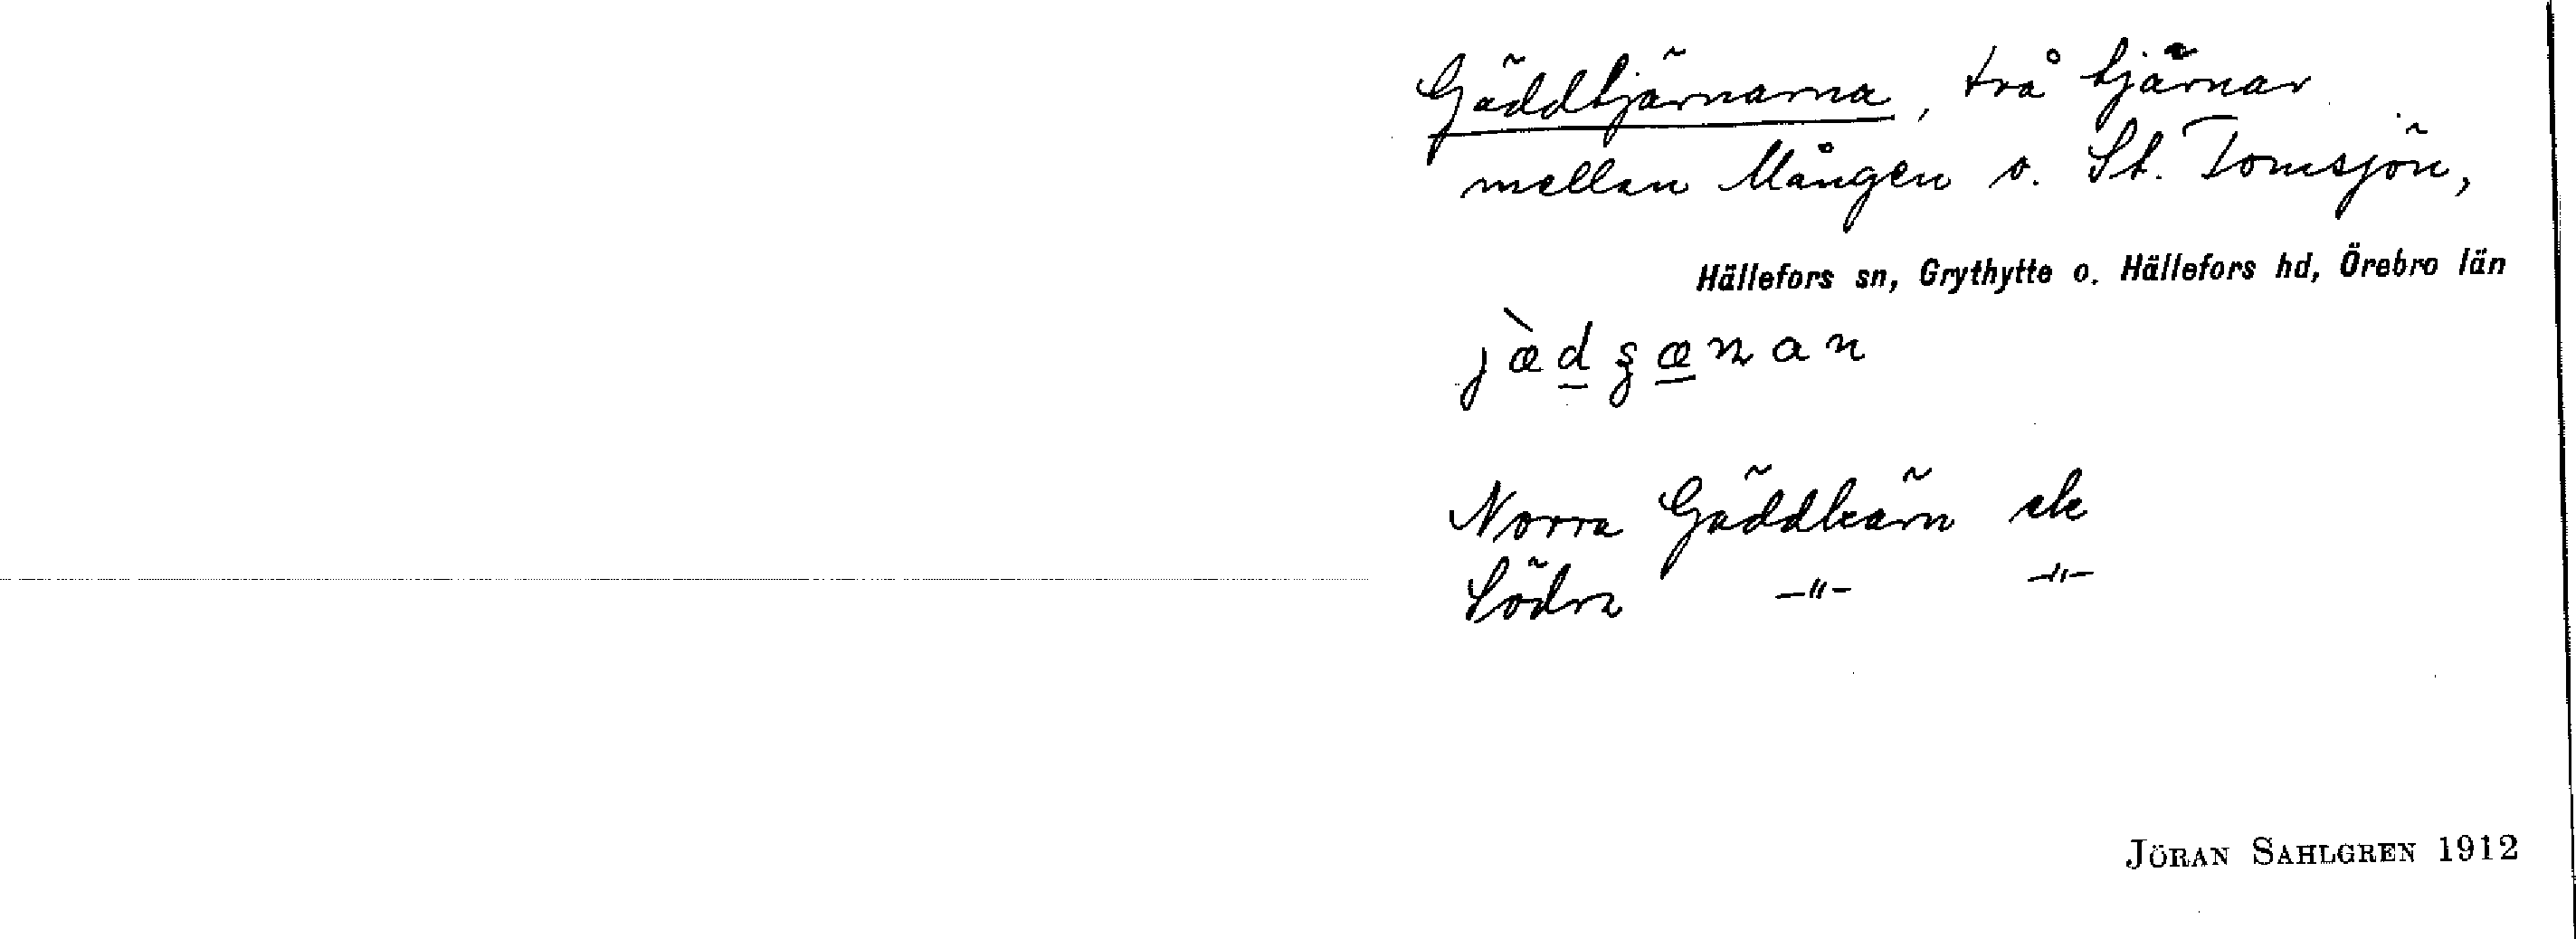 Gäddtjärnarna, två tjärnar
mellan Mången o. St. Tomsjön,
Hällefors sn, Grythytte o. Hällefors hd, Örebro län
Norra Gäddkärn ek
Södra -"- -"-
JÖRAN SAHLGREN 1912